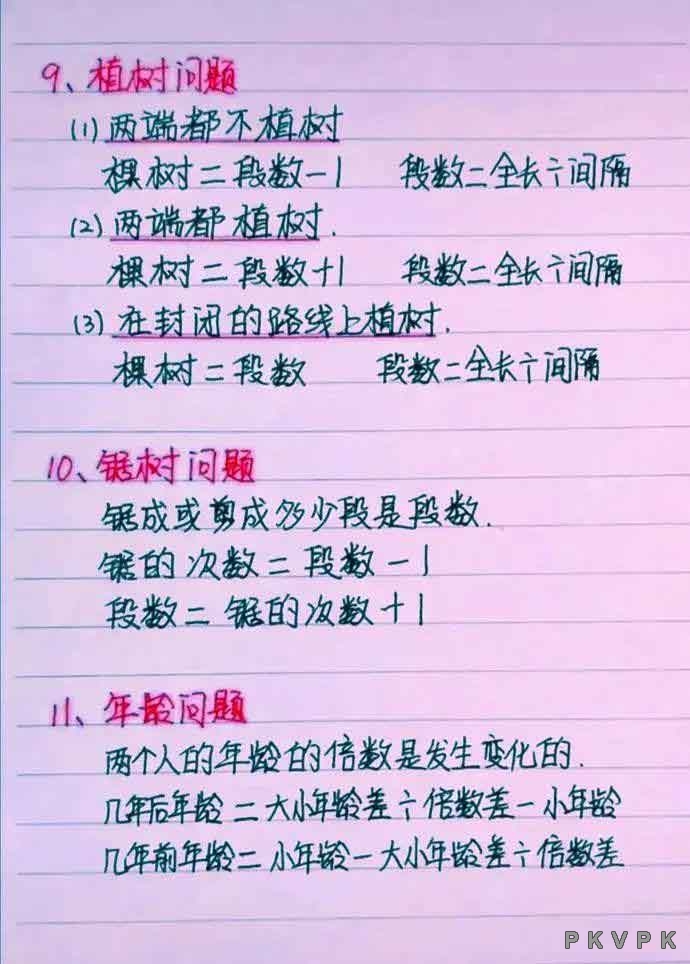 9、植树问题
(1) 两端都不植树
棵树=段数-1 段数=全长÷间隔
(2) 两端都植树.
棵树=段数+1 段数=全长÷间隔
(3) 在封闭的路线上植树.
棵树=段数 段数=全长÷间隔
10、锯树问题
锯成或剪成多少段是段数.
锯的次数=段数-1
段数=锯的次数+1
11、年龄问题
两个人的年龄的倍数是发生变化的.
几年后年龄=大小年龄差÷倍数差-小年龄
几年前年龄=小年龄-大小年龄差÷倍数差
PKVPK